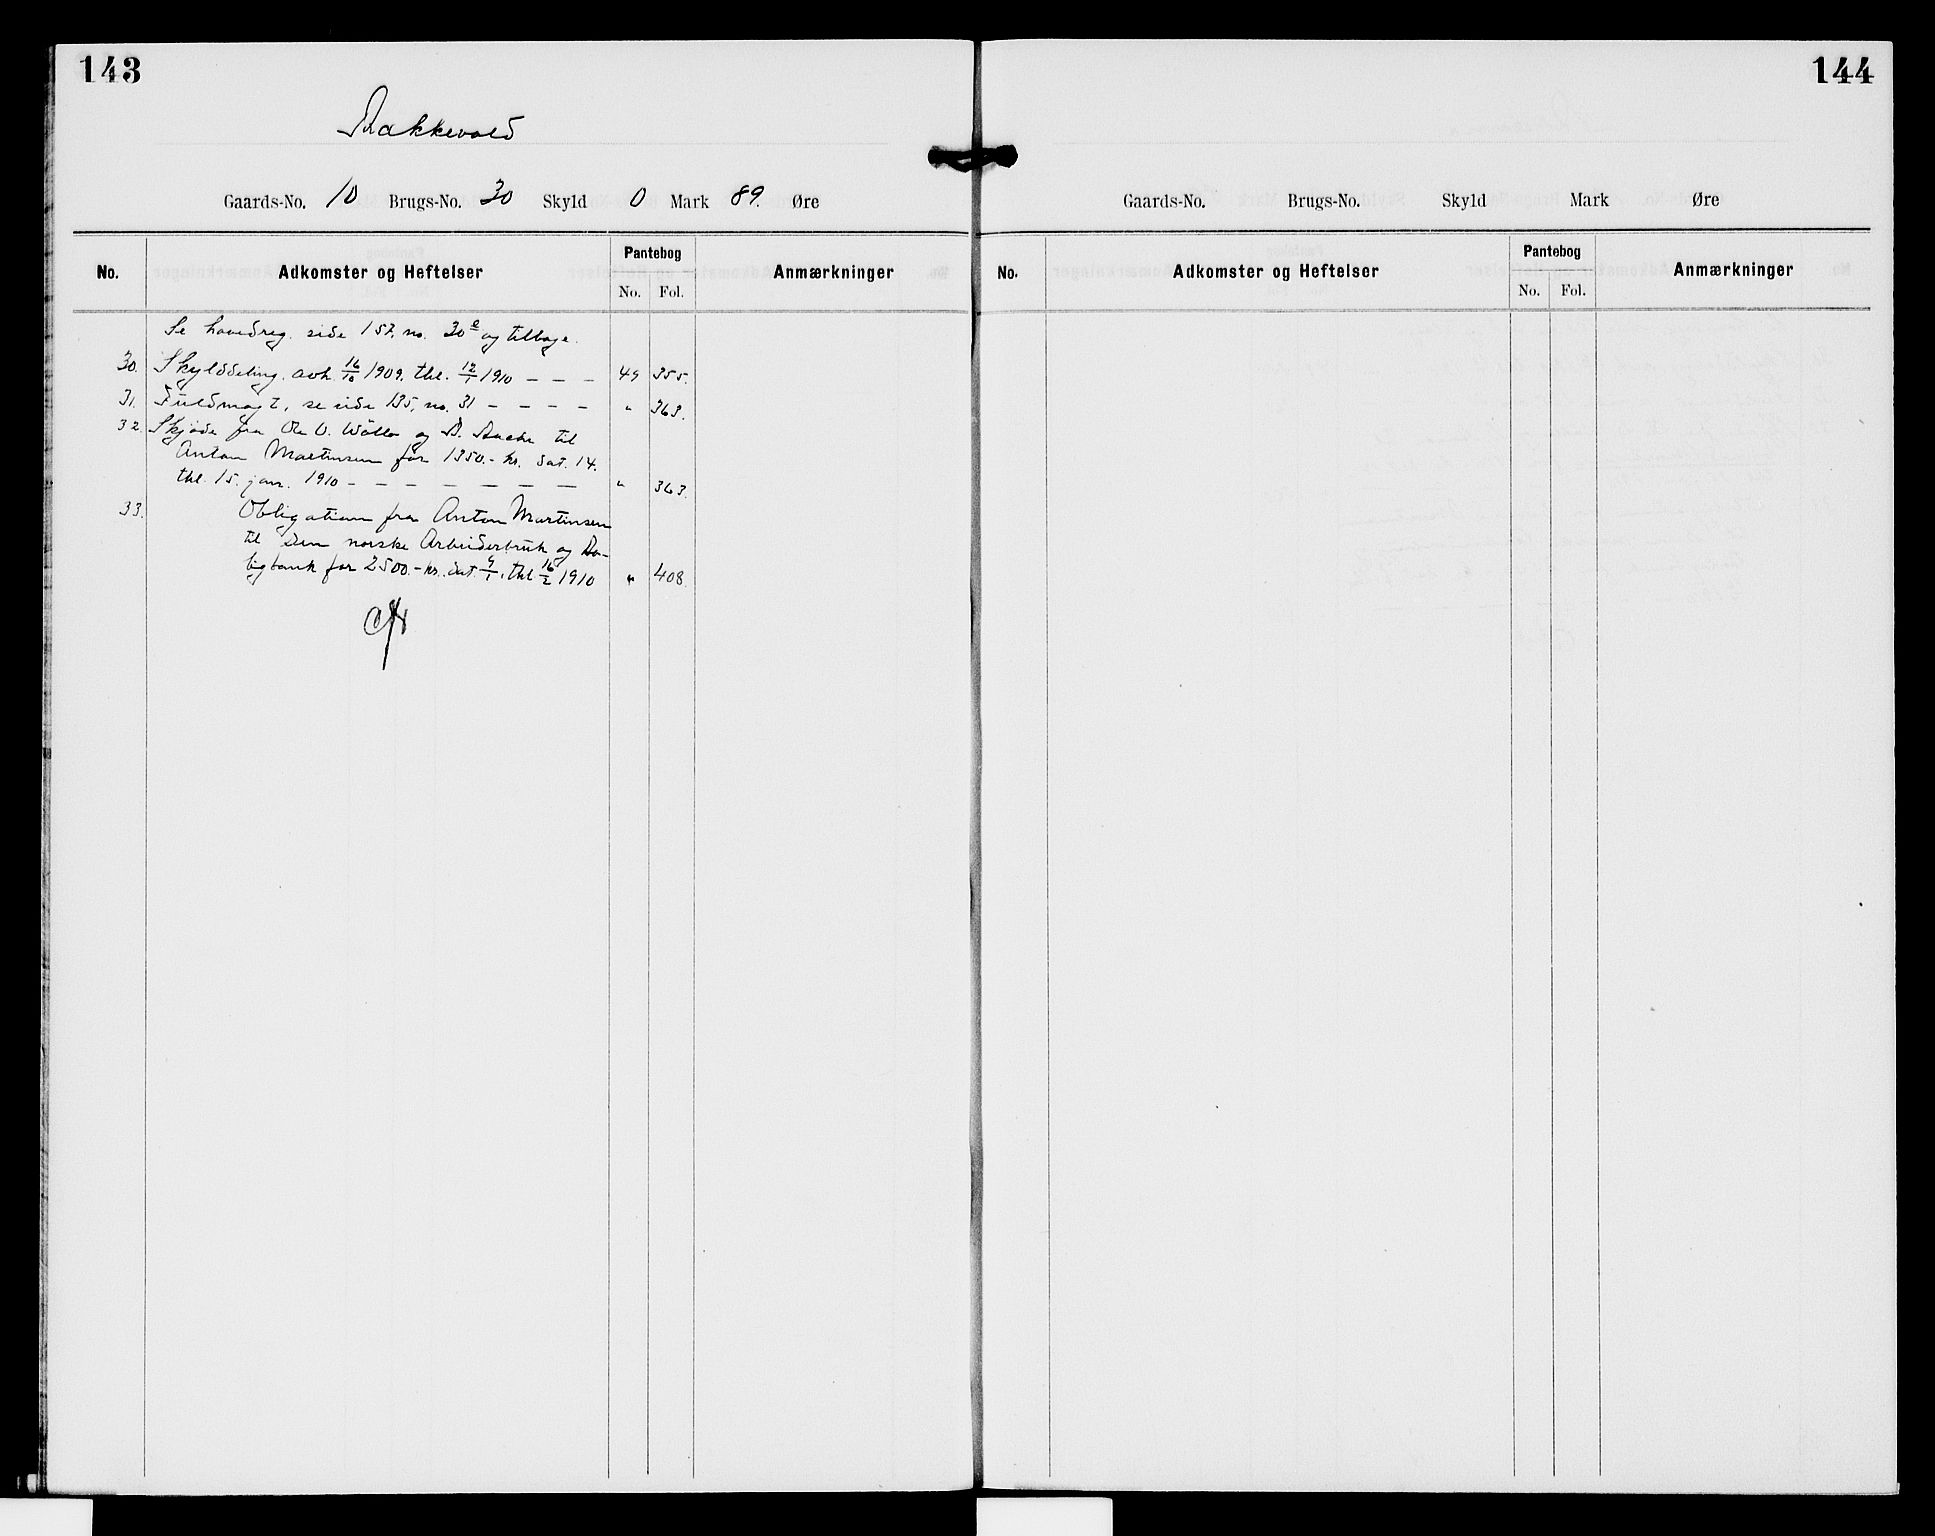 143
Bakkevold
Gaards-No. 10 Brugs-No. 30 Skyld 0 Mark 89. Øre
No. Adkomster og Heftelser Pantebog Anmærkninger
No. Fol.
Se hovedreg. side 157, no. 30 og tilbage.
30. Skylddeling. avh. 16/10 1909. thl. 12/1 1910 – – – 49 355.
31. Fuldmagt, se side 135, no. 31 – – – – " 363.
32. Skjøde fra Ole O. og B. til
Anton Martinsen for 1350.- kr. dat. 14.
thl. 15. jan. 1910 – – – – – – – – – " 363.
33. Obligation fra Anton Martinsen
til Den norske Arbeiderbruk og Bo-
ligbank for 2500.- kr. dat. 4/1, thl. 16/2 1910 " 408.
144
Gaards-No. Brugs-No. Skyld Mark Øre
No. Adkomster og Heftelser Pantebog Anmærkninger
No. Fol.